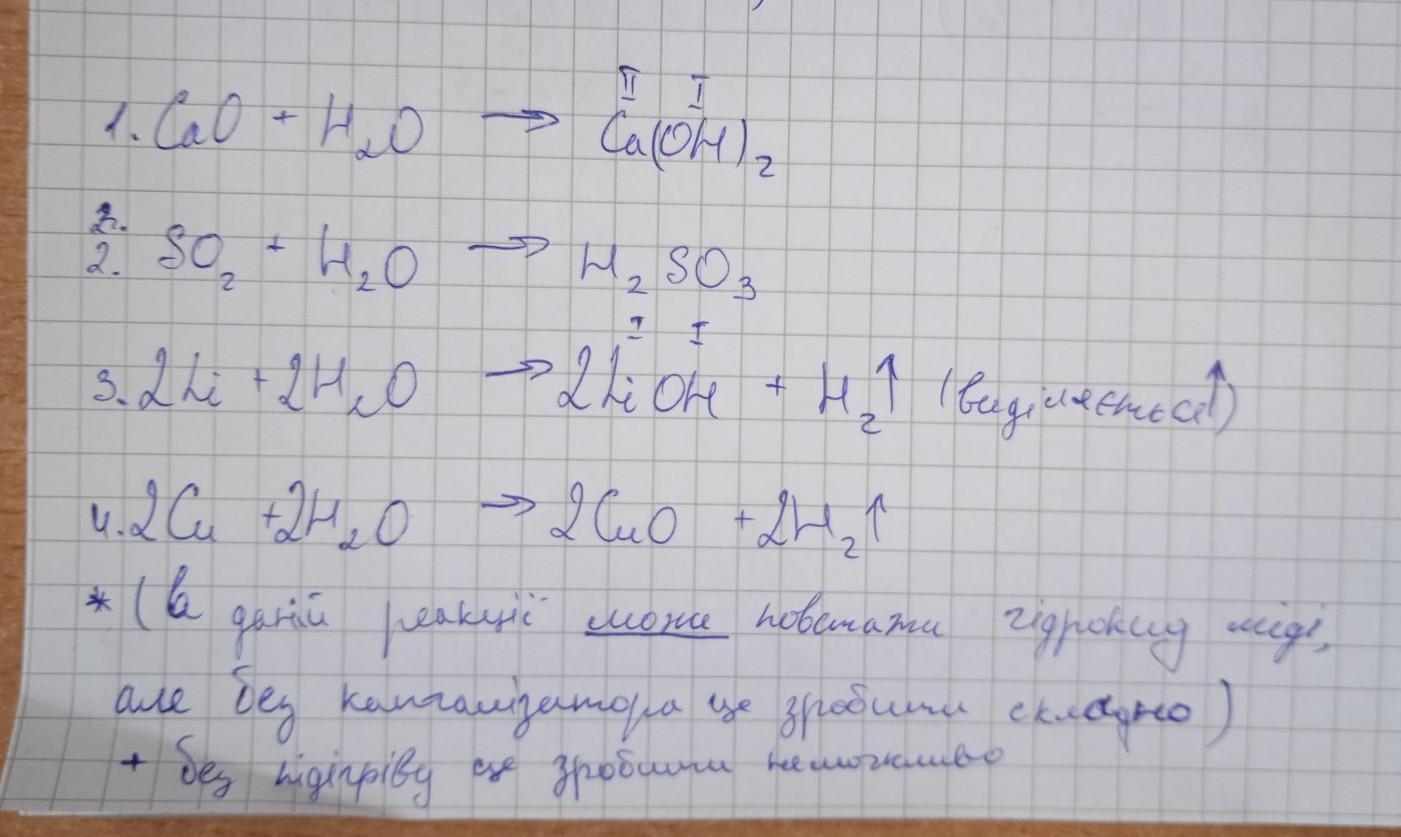 II I
1. CaO + H₂O → Ca(OH)₂
2.
2. SO₂ + H₂O → H₂SO₃
I I
3. 2Li + 2H₂O → 2LiOH + H₂↑ (виділяється↑)
4. 2Cu + 2H₂O → 2CuO + 2H₂↑
* (в даній реакції може повстати гідроксид міді,
але без каталізатора це зробити складно)
+ без підігріву це зробити неможливо